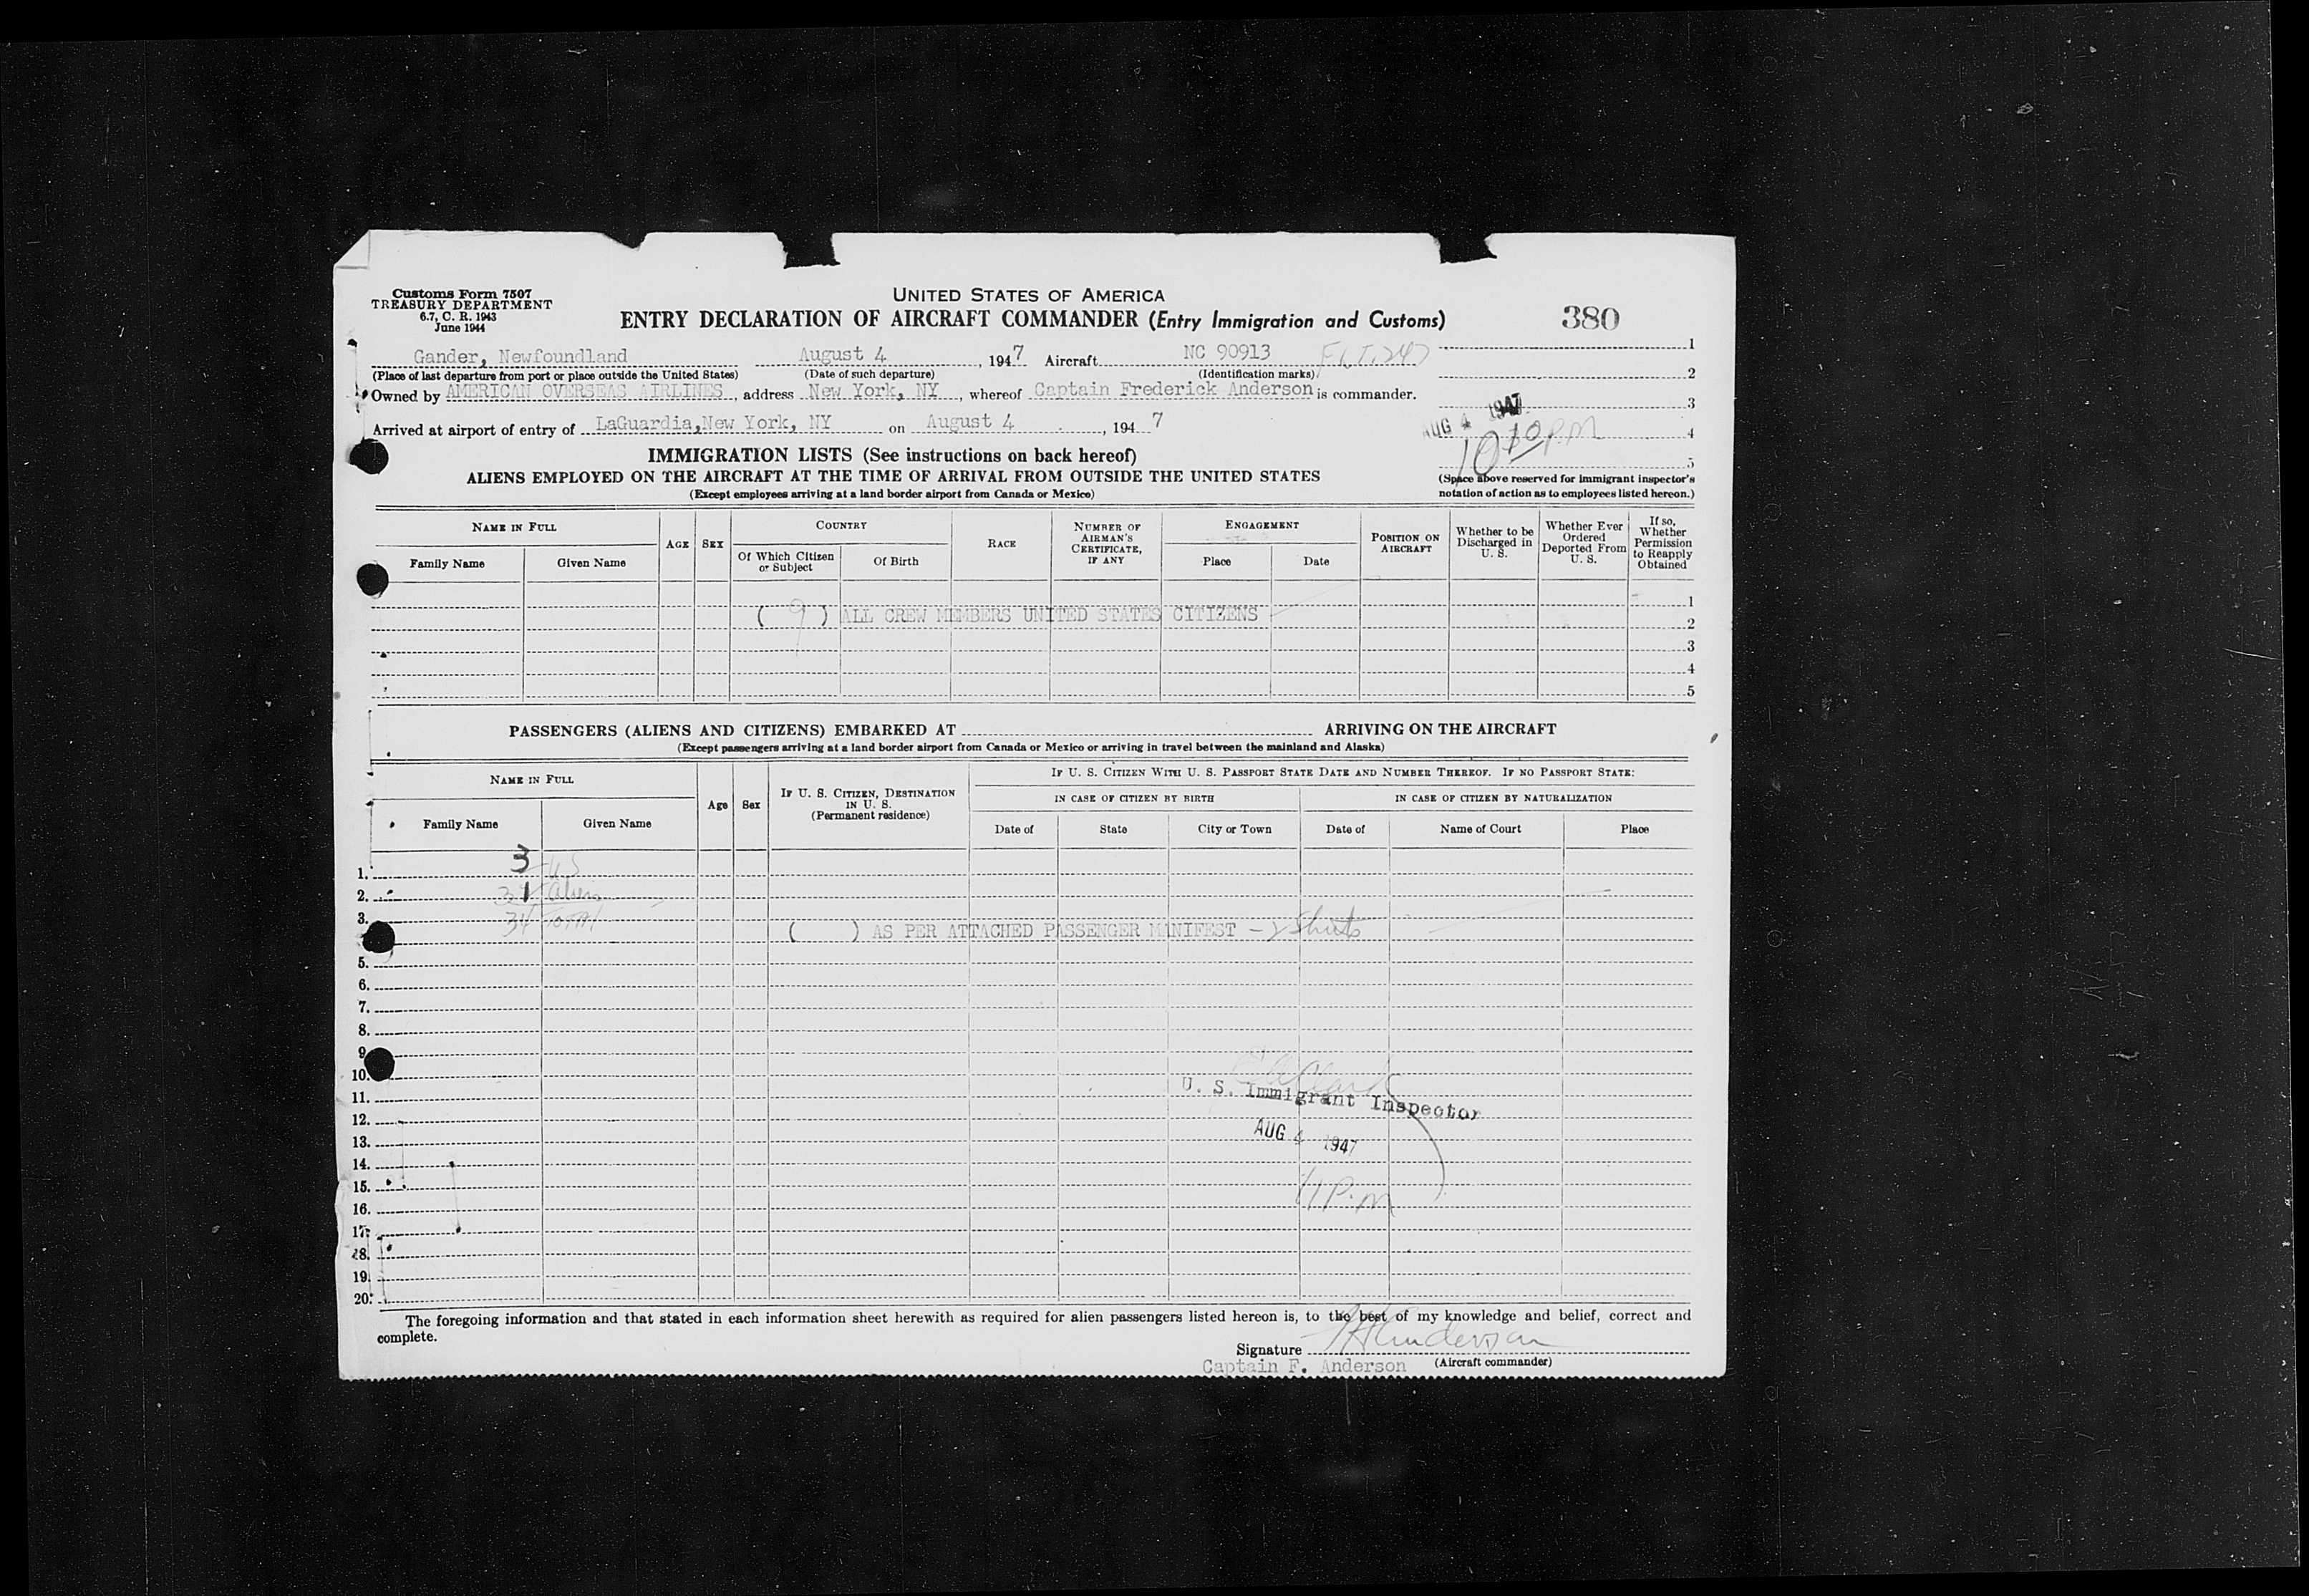 Customs Form 7507
TREASURY DEPARTMENT
6.7, C. R. 1943
June 1944
UNITED STATES OF AMERICA
ENTRY DECLARATION OF AIRCRAFT COMMANDER (Entry Immigration and Customs)
380
Gander, Newfoundland August 4, 1947 Aircraft NC 90913 FLT. 247
(Place of last departure from port or place outside the United States) (Date of such departure) (Identification marks)
Owned by AMERICAN OVERSEAS AIRLINES, address New York, NY, whereof Captain Frederick Anderson is commander.
Arrived at airport of entry of LaGuardia, New York, NY on August 4, 1947
1
2
3
4
5
AUG 4 1947
10 10 P.M
(Space above reserved for immigrant inspector's
notation of action as to employees listed hereon.)
IMMIGRATION LISTS (See instructions on back hereof)
ALIENS EMPLOYED ON THE AIRCRAFT AT THE TIME OF ARRIVAL FROM OUTSIDE THE UNITED STATES
(Except employees arriving at a land border airport from Canada or Mexico)
NAME IN FULL
Family Name
Given Name
AGE
SEX
COUNTRY
Of Which Citizen
or Subject
Of Birth
RACE
NUMBER OF
AIRMAN'S
CERTIFICATE,
IF ANY
ENGAGEMENT
Place
Date
POSITION ON
AIRCRAFT
Whether to be
Discharged in
U. S.
Whether Ever
Ordered
Deported From
U. S.
If so,
Whether
Permission
to Reapply
Obtained
1
( 9 ) ALL CREW MEMBERS UNITED STATES CITIZENS
2
3
4
5
PASSENGERS (ALIENS AND CITIZENS) EMBARKED AT ARRIVING ON THE AIRCRAFT
(Except passengers arriving at a land border airport from Canada or Mexico or arriving in travel between the mainland and Alaska)
NAME IN FULL
Family Name
Given Name
Age
Sex
IF U. S. CITIZEN, DESTINATION
IN U. S.
(Permanent residence)
IF U. S. CITIZEN WITH U. S. PASSPORT STATE DATE AND NUMBER THEREOF. IF NO PASSPORT STATE:
IN CASE OF CITIZEN BY BIRTH
IN CASE OF CITIZEN BY NATURALIZATION
Date of
State
City or Town
Date of
Name of Court
Place
1. 3 US
2. 31 Aliens
3. 34 TOTAL
( ) AS PER ATTACHED PASSENGER MANIFEST - 2 Sheets
5.
6.
7.
8.
9.
10.
11.
12.
13.
14.
15.
16.
17.
18.
19.
20.
U. S. Immigrant Inspector
AUG 4 1947
11 P.M
The foregoing information and that stated in each information sheet herewith as required for alien passengers listed hereon is, to the best of my knowledge and belief, correct and
complete.
Signature Anderson
Captain F. Anderson (Aircraft commander)